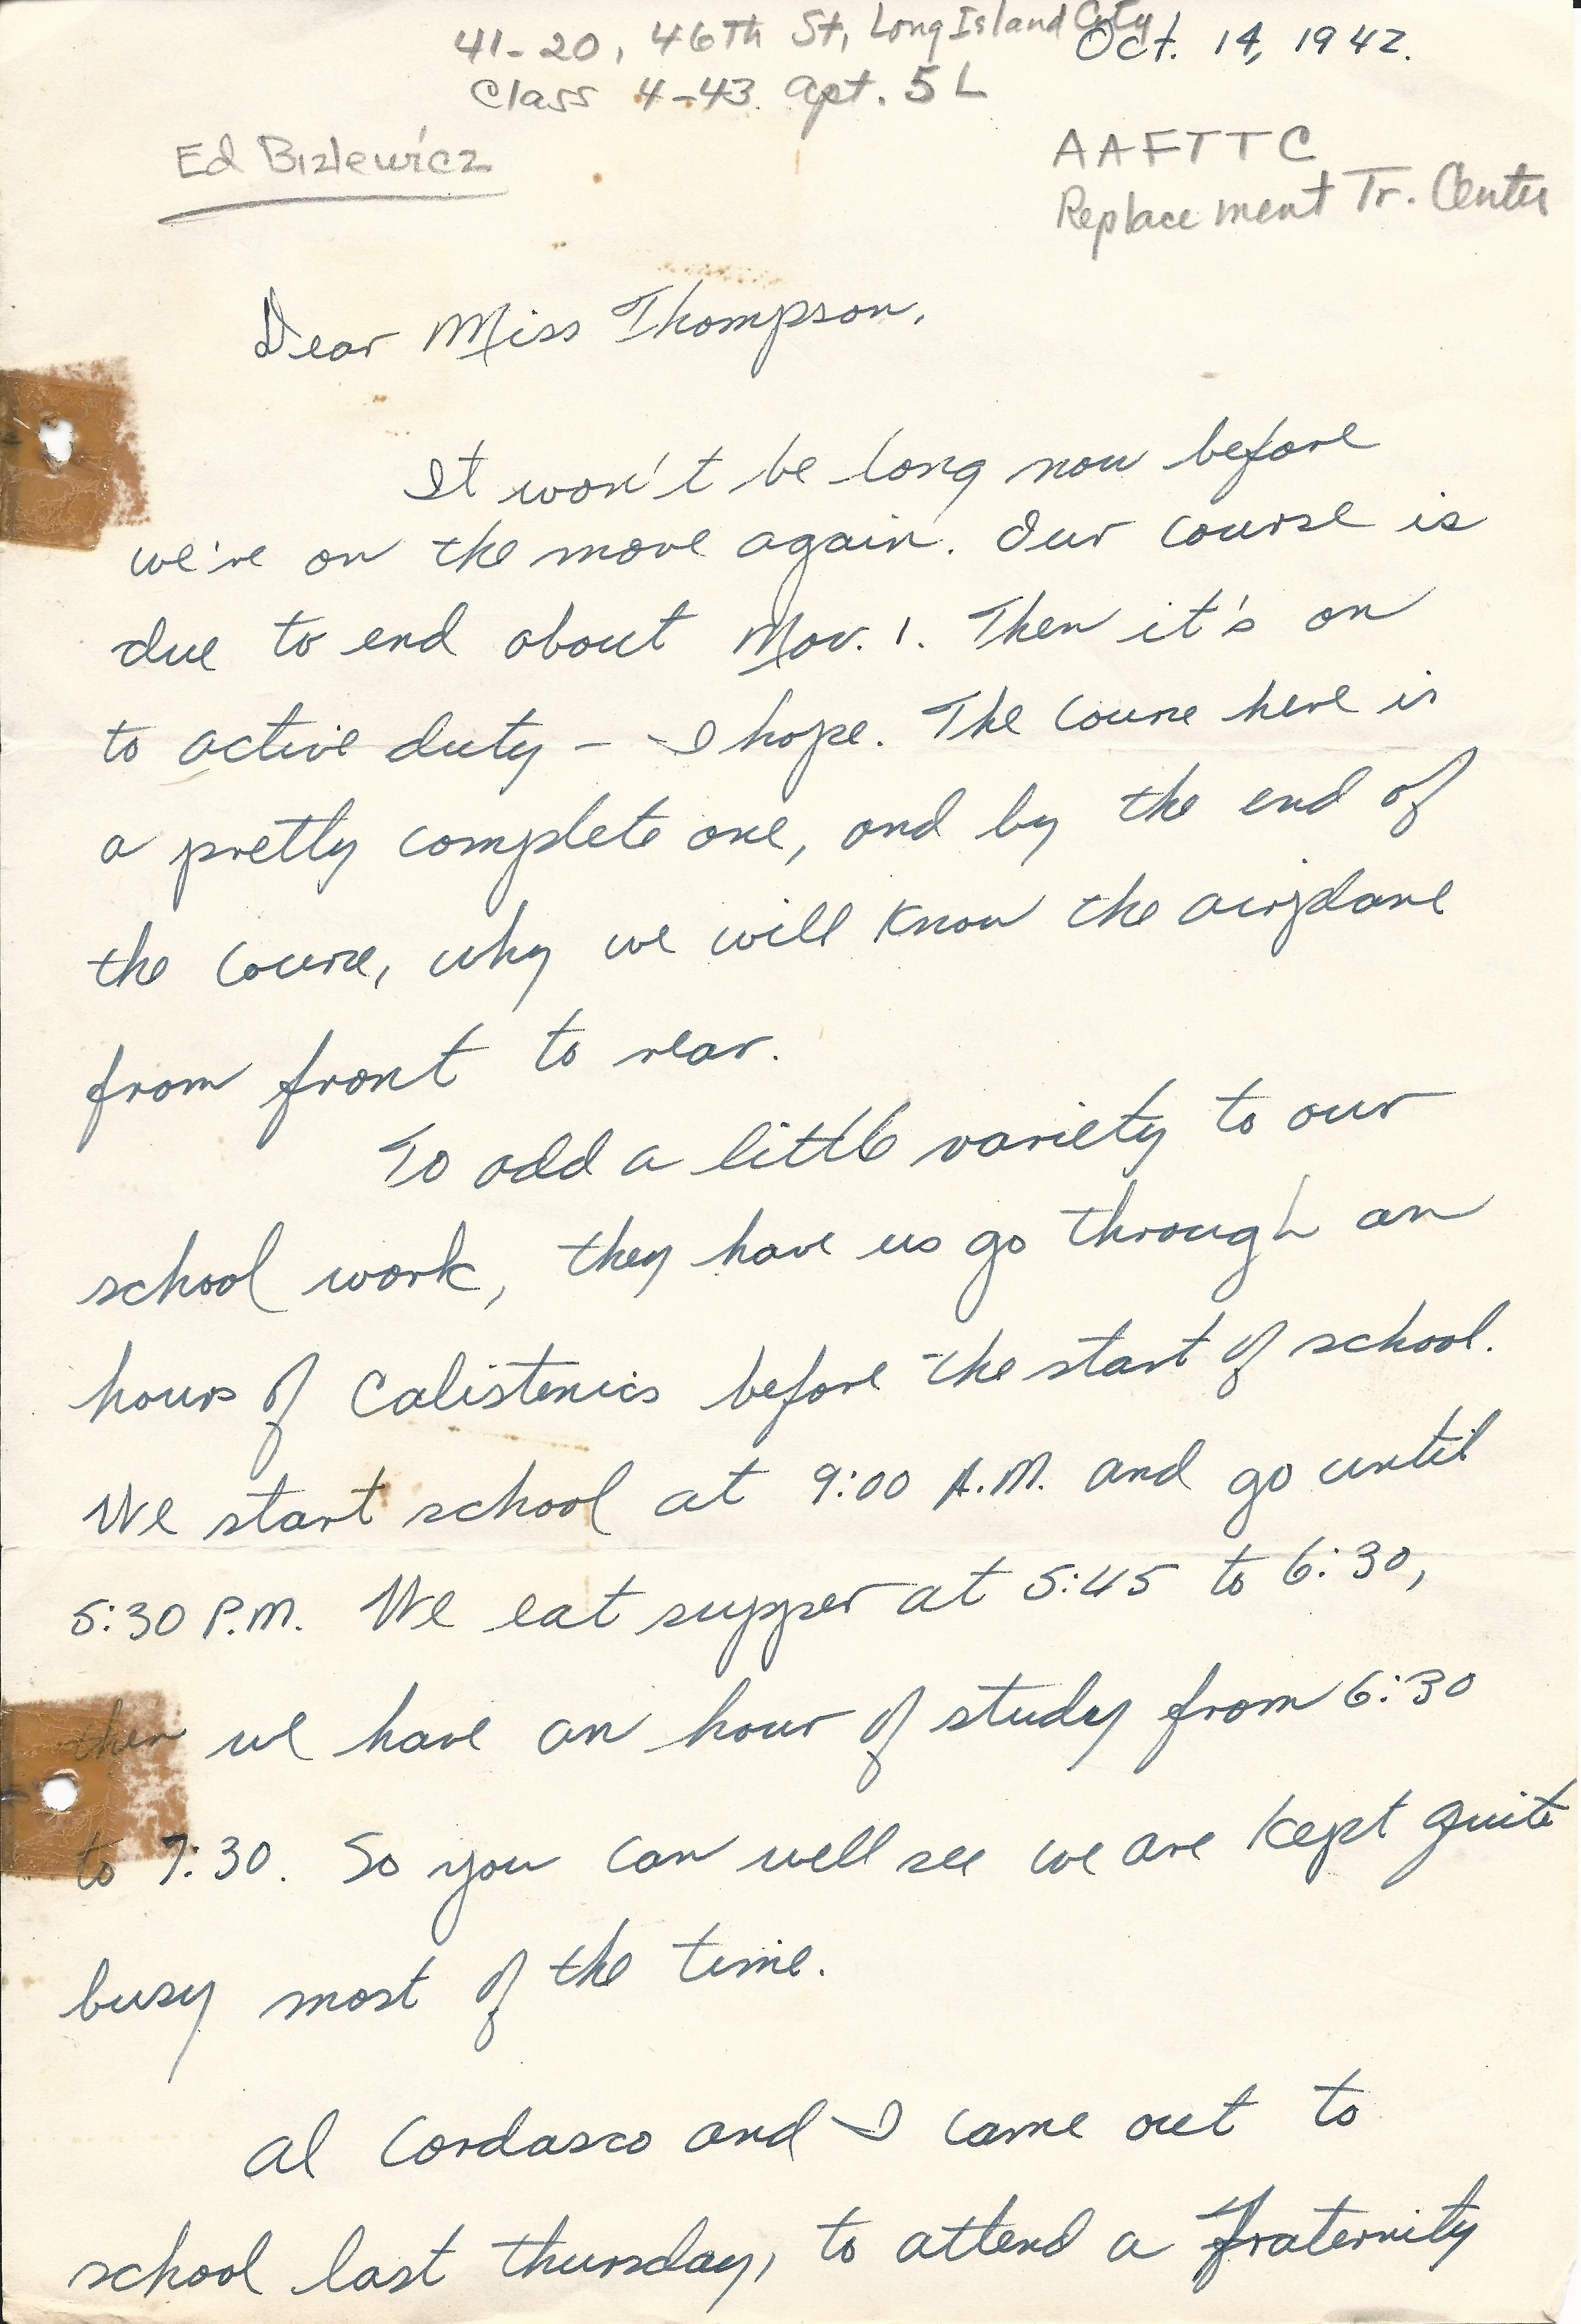 41-20, 46Th St, Long Island City
Oct. 14, 1942.
Class 4-43. Apt. 5L
Ed Bizlewicz
AAFTTC
Replacement Tr. Center
Dear Miss Thompson,
It won't be long now before
we're on the move again. Our course is
due to end about Nov. 1. Then it's on
to active duty – I hope. The course here is
a pretty complete one, and by the end of
the course, why we will know the airplane
from front to rear.
To add a little variety to our
school work, they have us go through an
hours of Calistenics before the start of school.
We start school at 9:00 A.M. and go until
5:30 P.M. We eat supper at 5:45 to 6:30,
then we have an hour of study from 6:30
to 7:30. So you can well see we are kept quite
busy most of the time.
Al Cordasco and I came out to
school last thursday, to attend a fraternity